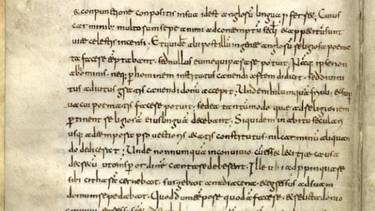 & conpunctione conpositis insua idest anglorum lingua proferret. Cuius
carminib; multorum saepe animi adcontemptum saeculi & appetitum sunt
uitae caelestis accensi. Et quidem & alii post illum ingente anglorum religiosa poema
ta facere temptabant. sed nullus eum aequiparare potuit. Namq; ipse non
ab hominib; neq; p hominem institutus canendi artem didicit. sed diuini
tus adiutus gratis canendi donum accepit. Unde nihil umquam friuoli & sup
uacui poematis facere potuit. sed ea tantummodo quae adreligionem
pertinent religiosam eius linguam decebant. Siquidem inhabitu saeculari
usq; adtempora prouectioris aetatis constitutus. nil carminum aliquan
do didicerat. Unde nonnumquam inconuiuio cum esset laetitiae causa
decretum ut omnes p ordinem cantare deberent. Ille ubi adpropinquare
sibi citharam cernebat. surgebat amedia caena. & egressus adsuam
domum repedabat. Quod dum tempore quodam faceret. & relicta domu